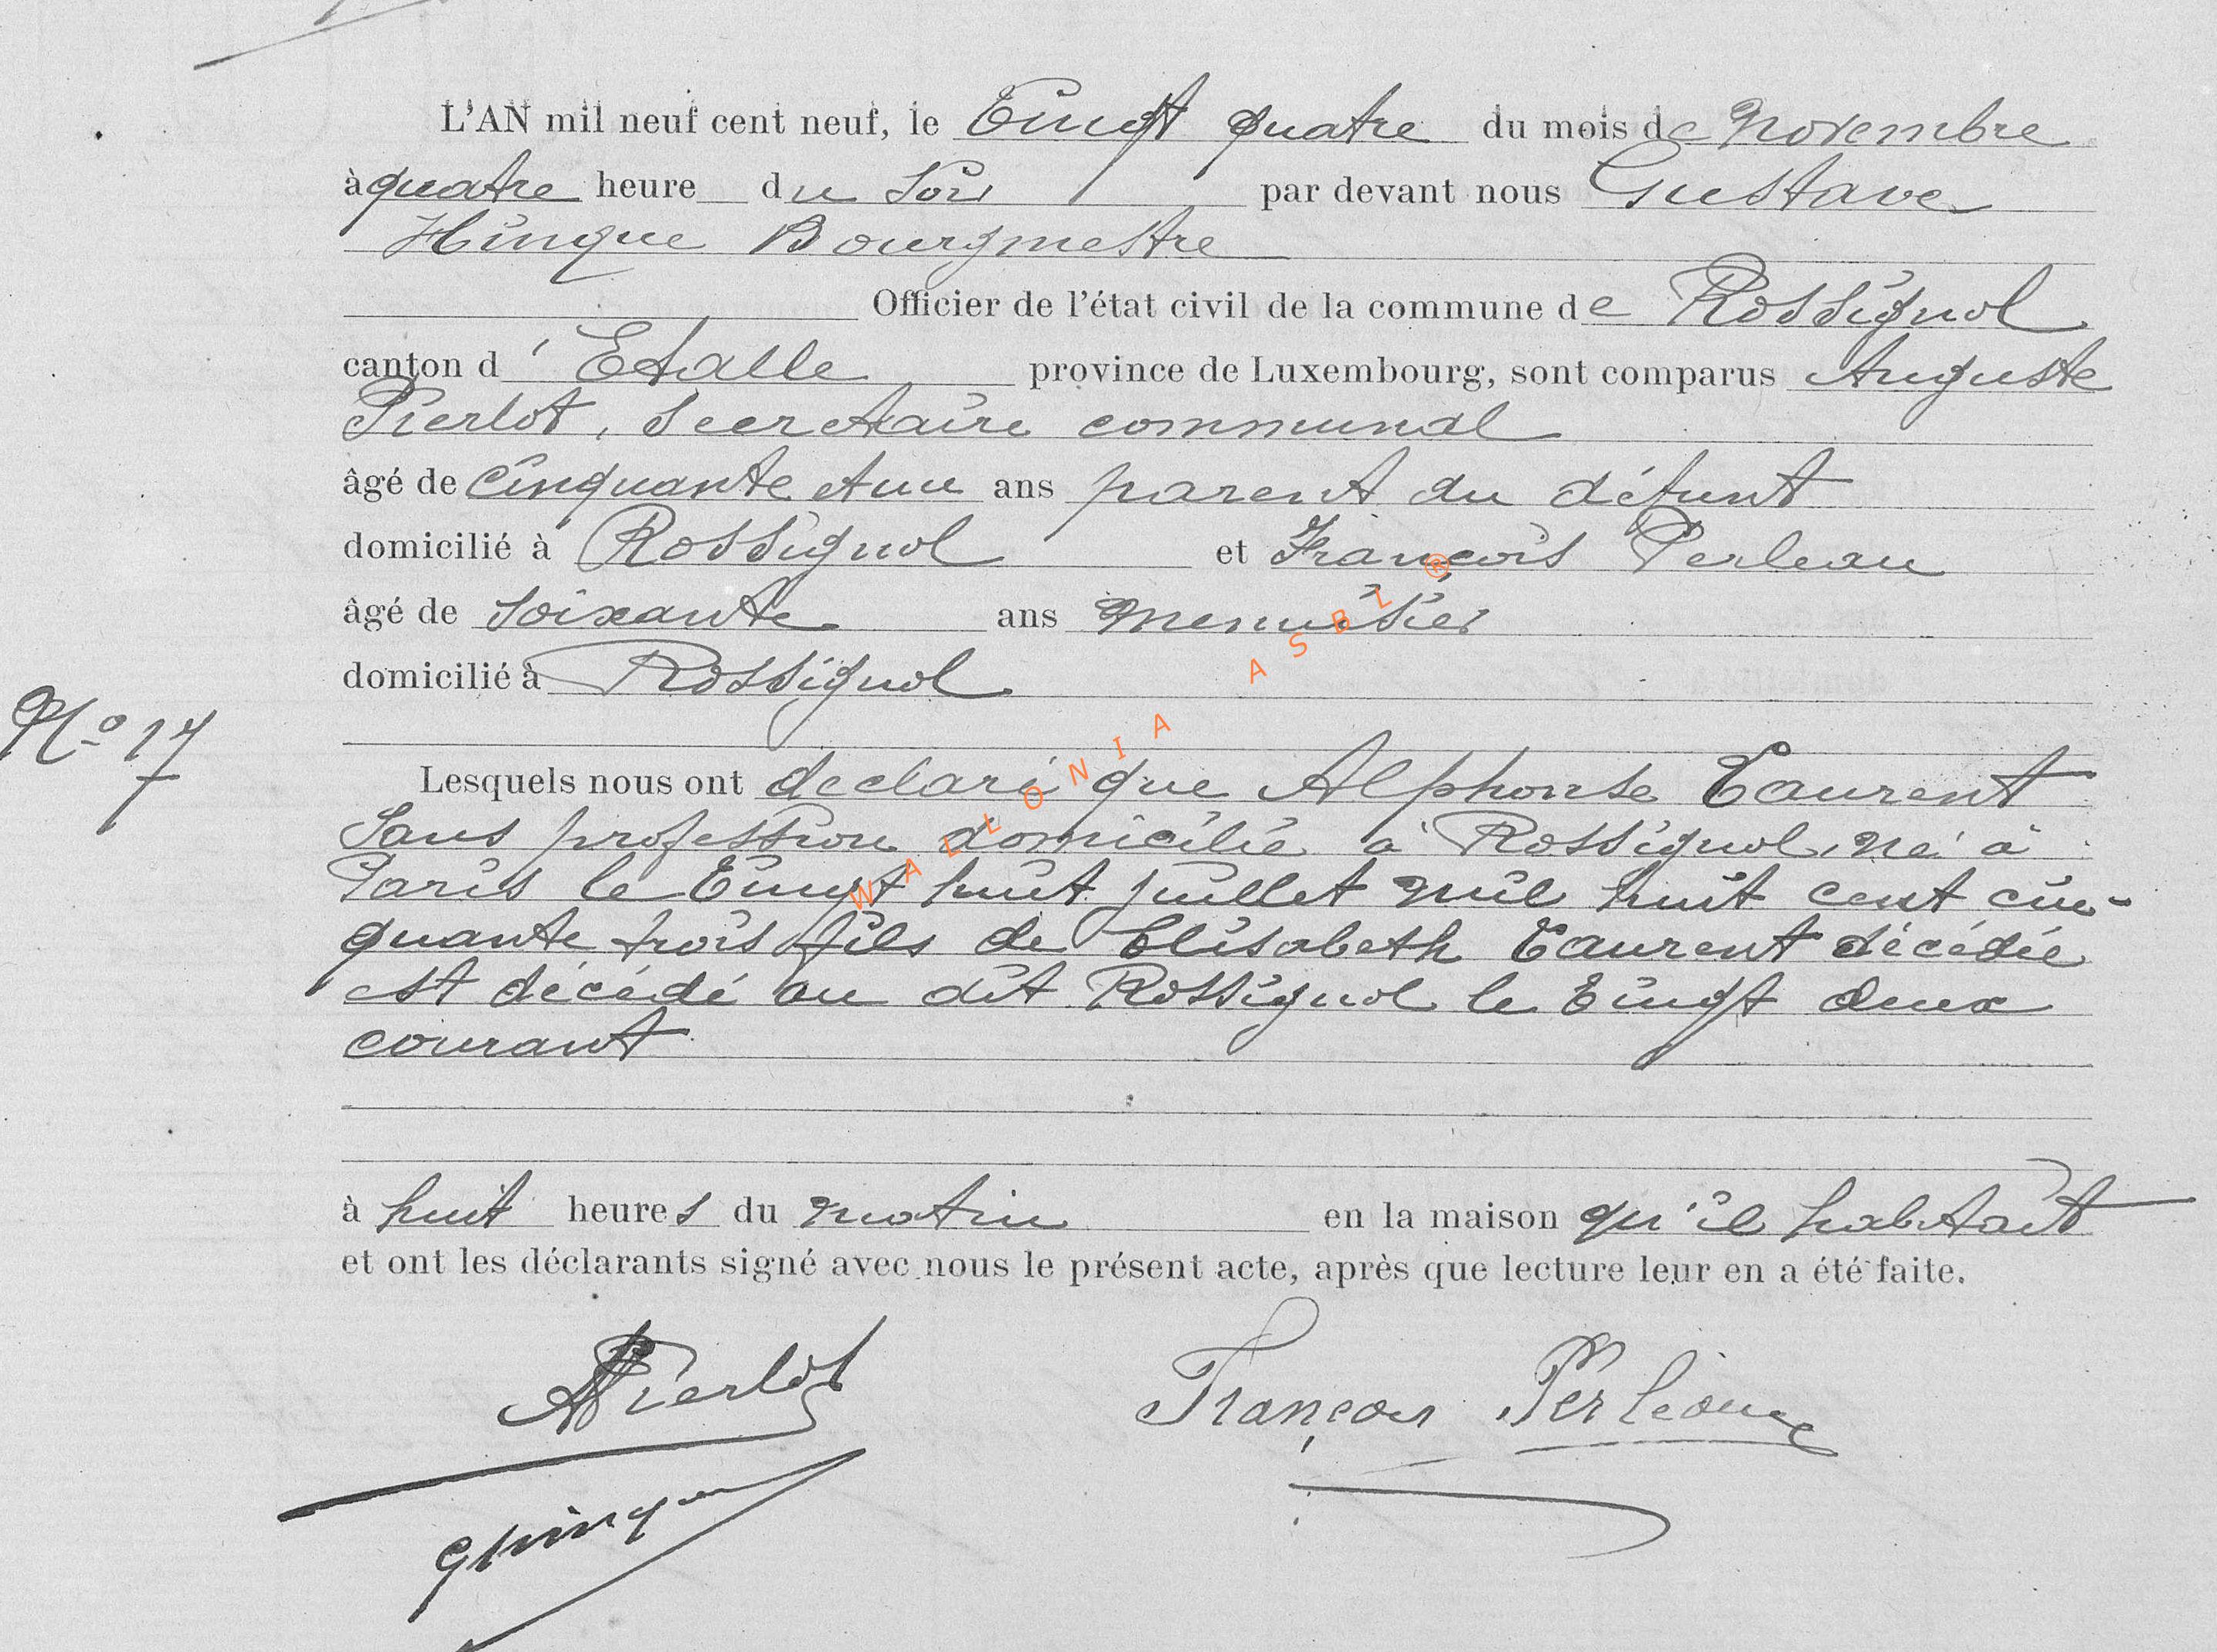 L'AN mil neuf cent neuf, le Vingt quatre du mois de Novembre
à quatre heure du Soir par devant nous Gustave
Hinque Bourgmestre
Officier de l'état civil de la commune de Rossignol
canton d'Etalle province de Luxembourg, sont comparus Auguste
Pierlot, Secretaire communal
âgé de Cinquante et un ans parent du défunt
domicilié à Rossignol et François Perleau
âgé de Soixante ans Menuisier
domicilié à Rossignol
No 17
Lesquels nous ont declaré que Alphonse Laurent
Sans profession domicilié à Rossignol, né à
Paris le Vingt huit juillet mil huit cent cin-
quante trois fils de Elisabeth Laurent décédée
est décédé au dit Rossignol le Vingt deux
courant
à huit heures du matin en la maison qu'il habitait
et ont les déclarants signé avec nous le présent acte, après que lecture leur en a été faite.
APierlot François
GHinque
WALLONIA ASBL ®